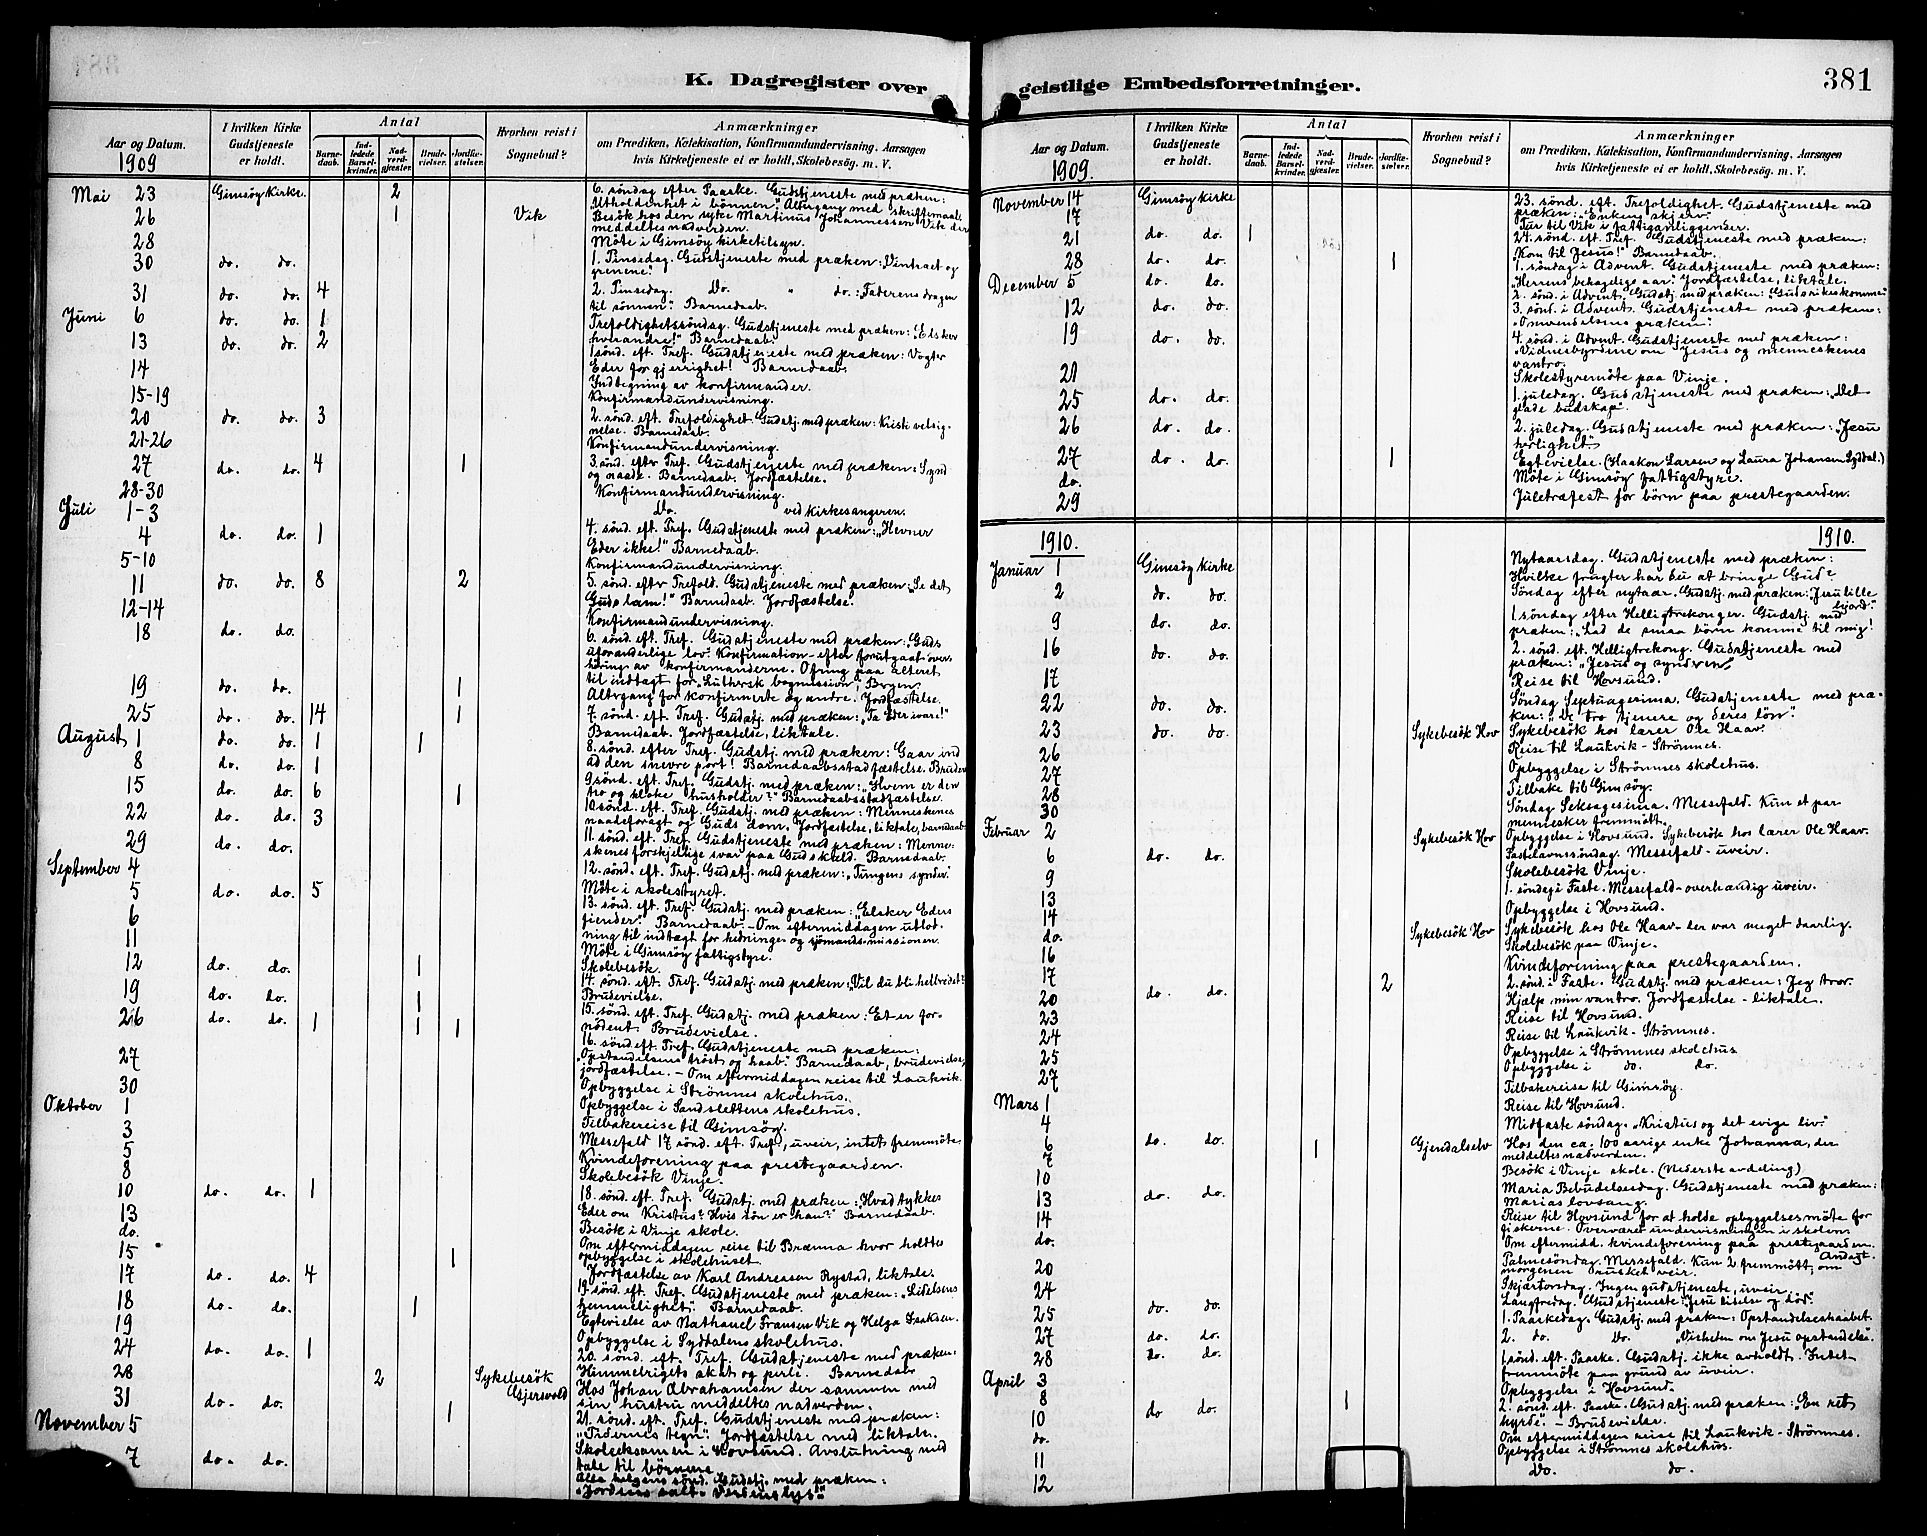 K. Dagregister over
geistlige Embedsforretninger.
381
Aar og Datum.
1909
I hvilken Kirke Gudstjeneste er holdt.
Antal
Barnedaab.
Indledede Barselkvinder.
Nadverdgjester.
Brudevielser.
Jordfæstelser.
Hvorhen reist i Sognebud?
Anmærkninger
om Prædiken, Katekisation, Konfirmandundervisning, Aarsagen
hvis Kirketjeneste ei er holdt, Skolebesøg. m. V.
Mai 23 Gimsöy Kirke. 2 6. söndag efter Paaske. Gudstjeneste med præken:
"Utholdenhet i bönnen". Altergang med skriftemaal.
26 1 Vik Besök hos den syke Martinus Johannessen Vik der
meddeltes nadverden.
28 Möte i Gimsöy kirketilsyn.
30 do. do. 1. Pinsedag. Gudstjeneste med præken: Vintræet og
grenene".
31 do. do. 4 2. Pinsedag. Do. " do.: Faderens dragen
til sönnen." Barnedaab.
Juni 6 do. do. 1 Trefoldighetssöndag. Gudstjeneste med præken: Elsker
hverandre!" Barnedaab.
13 do. do. 2 1 sönd. eft. Tref. Gudstjeneste med præken: Vogter
Eder for gjerrighet! Barnedaab.
14 Indtegning av konfirmander.
15-19 Konfirmandundervisning.
20 do. do. 3 2. sönd. eft. Trefoldighet. Gudstj. med præken: Kristi velsig-
nelse. Barnedaab.
21-26 Konfirmandundervisning.
27 do. do. 4 1 3. sönd. eftr Tref. Gudstjeneste med præken: Synd
og naade. Barnedaab. Jordfæstelse.
28-30 Konfirmandundervisning.
Juli 1-3 Do. ved kirkesangeren.
4 do. do. 1 4. sönd. eft. Tref. Gudstjeneste med præken: "Hevner
Eder ikke!" Barnedaab.
5-10 Konfirmandundervisning.
11 do. do. 8 2 5. sönd. eftr Trefold. Gudstjeneste med præken "Se det
Guds lam!" Barnedaab. Jordfæstelse.
12-14 Konfirmandundervisning.
18 do. do. 6. sönd. eft. Tref. Gudstjeneste med præken: "Guds
uforanderlige lov." Konfirmation - efter forutgaat over
höring av konfirmanderne. Ofring paa alteret
til indtægt for "Luthersk bogmission", Bergen.
19 do. do. 1 Altergang for konfirmerte og andre. Jordfæstelse.
25 do. do. 14 1 7. sönd. eft. Tref. Gudstj. med præken: "Ta Eder ivare!"
Barnedaab. Jordfæstelse, liktale.
August 1 do. do. 1 1 8. sönd. efter Tref. Gudstj. med præken: Gaar ind
ad den snevre port! Barnedaabsstadfæstelse. Brudev.
8 do. do. 1 9 sönd. eft. Tref. Gudstj. med præken: "Hvem er den
tro og kloke husholder?" Barnedaabsstadfæstelse.
15 do. do. 6 1 10. sönd. eft. Tref. Gudstj. med præken: Menneskenes
naadeforagt og Guds dom. Jordfæstelse, liktale, barnedaab.
22 do. do. 3 11. sönd. eft. Tref. Gudstjeneste med præken: Menne-
skenes forskjellige svar paa Guds kald. Barnedaab.
29 do. do. 12. sönd. eft. Tref. Gudstj. med præken: "Tungens synder.
September 4 Möte i skolestyret.
5 do. do. 5 13. sönd. eft. Tref. Gudstj. med præken: "Elsker Eders
fiender." Barnedaab. - Om eftermiddagen utlod-
ning til indtægt for hedninge- og sjömandsmissionen.
6 Möte i Gimsöy fattigstyre.
11 Skolebesök.
12 do. do. 1 14. sönd. eft. Tref. Gudstj. med præken: "Vil du bli helbredet?
Brudevielse.
19 do. do. 1 15. sönd. eft. Tref. Gudstj. med præken: Et er for-
nödent. Brudevielse.
26 do. do. 1 1 1 16. sönd. eft. Tref. Gudstjeneste med præken:
"Opstandelsens tröst og haab." Barnedaab, brudevielse,
jordfæstelse. - Om eftermiddagen reise til Laukvik.
27 Opbyggelse i Strömnes skolehus.
30 Opbyggelse i Sandslettens skolehus.
Oktober 1 Tilbakereise til Gimsöy.
3 Messefald 17 sönd. eft. Tref., uveir, intet fremmöte.
5 Kvindeforening paa prestegaarden.
8 Skolebesök Vinje.
10 do. do. 1 18. sönd. eft. Tref. Gudstj. med præken: "Hvad tykkes
Eder om Kristus? Hvis sön er han?" Barnedaab.
13 Besök i Vinje skole.
do. Om eftermiddagen reise til Brenna hvor holdtes
opbyggelse i skolehuset.
15 1 Jordfæstelse av Karl Andreasen Rystad, liktale.
17 do. do. 4 19. sönd. eft. Tref. Gudstjeneste med præken: "Lidelsens
hemmelighet". Barnedaab.
18 do. do. 1 Egtevielse av Nathanael Fransen Vik og Helga Isaksen.
19 Opbyggelse i Syddalens skolehus.
24 do. do. 1 20. sönd. eft. Tref. Gudstjeneste med præken:
Himmelrigets skat og perle. Barnedaab
28 2 Sykebesök Gjersvold Hos Johan Abrahamsen der sammen med
sin hustru meddeltes nadverden.
31 do. do. 21. sönd. eft. Tref. Gudstjeneste med præken:
"Tidernes tegn". Jordfæstelse med liktale.
November 5 1 Skoleeksamen i Hovsund. Avslutning med
tale til börnene.
7 do. do. Alle helgens sönd. Gudstj. med præken:
"Jordens salt - Verdens lys!"
Aar og Datum.
1909.
I hvilken Kirke Gudstjeneste er holdt.
Antal
Barnedaab.
Indledede Barselkvinder.
Nadverdgjester.
Brudevielser.
Jordfæstelser.
Hvorhen reist i Sognebud?
Anmærkninger
om Prædiken, Katekisation, Konfirmandundervisning, Aarsagen
hvis Kirketjeneste ei er holdt, Skolebesøg. m. V.
November 14 Gimsöy Kirke 23. sönd. eft. Trefoldighet. Gudstjeneste med
præken: "Enkens skjerv".
17 Tur til Vik i fattiganliggender.
21 do. do. 1 24. sönd. eft. Tref. Gudstjeneste med præken:
"Kom til Jesus!" Barnedaab.
28 do. do. 1 1. söndag i Advent. Gudstjeneste med præken:
"Herrens behagelige aar". Jordfæstelse, liktale.
December 5 do. do. 2. sönd. i Advent. Gudstj. med præken: "Gudsrikes komme"
12 do. do. 3. sönd. i Advent. Gudstjeneste med præken:
"Omvendelsens præken".
19 do. do. 4. sönd. i Advent. Gudstjeneste med præken:
"Vidnesbyrdene om Jesus og menneskenes
vantro.
21 Skolestyremöte paa Vinje.
25 do. do. 1. juledag. Gudstjeneste med præken: "Det
glade budskap".
26 do. do. 2. juledag. Gudstjeneste med præken: "Jesu
herlighet".
27 do. do. 1 Egtevielse. (Haakon Larsen og Laura Johansen Syddal.)
do. Möte i Gimsöy fattigstyre.
29 Juletræfest for börn paa prestegaarden.
1910. 1910.
Januar 1 Gimsöy Kirke Nytaarsdag. Gudstjeneste med præken:
Hvilke frugter har du at bringe Gud?
2 do. do. Söndag efter nytaar. Gudstj. med præken: "Jesu lille
hjord."
9 do. do. 1. söndag efter Helligtrekonger. Gudstj. med
præken: "Lad de smaa börn komme til mig!
16 do. do. 2. sönd. eft. Helligtrekong. Gudstjeneste med
præken: "Jesus og synderen".
17 Reise til Hovsund.
22 do. do. Söndag Septuagesima. Gudstjeneste med præ-
ken: "De tro tjenere og deres lön".
23 do. do. Sykebesök Hov Sykebesök hos lærer Ole Haav.
26 Reise til Laukvik - Strömnes.
27 Opbyggelse i Strömnes skolehus.
28 Tilbake til Gimsöy.
30 Söndag Seksagesima. Messefald. Kun et par
mennesker fremmött.
Februar 2 Sykebesök Hov Opbyggelse i Hovsund. Sykebesök hos lærer Ole Haav.
6 do. do. Fastelavnssöndag. Messefald - uveir.
9 Skolebesök Vinje.
13 1. söndag i Faste. Messefald - overhændig uveir.
14 Opbyggelse i Hovsund.
do. Sykebesök Hov Sykebesök hos Ole Haav - der var meget daarlig.
16 Skolebesök paa Vinje.
17 Kvindeforening paa prestegaarden.
20 do. do. 2 2. sönd. i Faste. Gudstj. med præken: Jeg tror.
Hjælp min vantro. Jordfæstelse - liktale.
23 Reise til Hovsund.
24 Reise til Laukvik - Strömnes.
25 Opbyggelse i Strömnes skolehus
27 Opbyggelse i do. do.
Tilbakereise til Gimsöy.
Mars 1 Reise til Hovsund.
4 Midfaste söndag. "Kristus og det evige liv."
6 do. do. 1 Gjendalselv Hos den ca. 100 aarige enke Johanna, der
meddeltes nadverden.
7 Besök i Vinje skole. (Nederste avdeling)
10 Maria Bebudelsesdag. Gudstjeneste med præken:
Marias lovsang.
13 do. do. Reise til Hovsund for at holde opbyggelsesmöte for
fiskerne. Overværet undervisningen i skolen.
14 Om eftermidd. kvindeforening paa prestegaarden.
do. Andagt.
20 Palmesöndag. Messefald. Kun 2 fremmött, om
morgenen rusket veir.
24 Skjærtorsdag. Ingen gudstjeneste, uveir.
25 do. do. Langfredag. Gudstjeneste: Jesu lidelse og död.
27 do. do. 1. Paaskedag. Gudstj. med præken: Opstandelseshaabet.
28 do. do. 2. do. Do. "Visheten om Jesu opstandelse".
April 3 1 sönd. eft. Paaske. Gudstj. ikke avholdt. Intet
fremmöte paa grund av uveir.
8 Opbyggelse i Hovsund.
10 do do. 1 2. sönd. eft. Paaske. Gudstj. med præken: "En ret
hyrde". - Brudevielse.
do. Om eftermiddagen reise til Laukvik - Strömnes.
11 Opbyggelse i Strömnes skolehus.
12 Do. do.